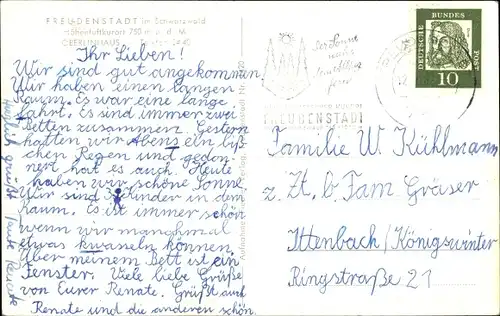 FREUDENSTADT im Schwarzwald
Höhenluftkurort 750 m ü. d. M.
OBERLINHAUS
Ihr Lieben!
Wir sind gut angekommen
Wir haben einen langen
Raum. Es war eine lange
Fahrt. Es sind immer zwei
Betten zusammen. Gestern
hatten wir Abens ein biß-
chen Regen und gedon-
nert hat es auch. Heute
haben wir schöne Sonne.
Wir sind Kinder in dem
Raum. Es ist immer schön
wenn wir manghmal
etwas kwaseln können.
Über meinem Bett ist ein
Fenster. Viele liebe Grüße
von Eurer Renate. Grüßt auch
Renate und die anderen schön.
Herzlich grüßt Tante Renate
FREUDENSTADT
DEUTSCHE BUNDESPOST
10
Familie W. Kühlmann
z. Zt. b. Fam. Gräser
Ittenbach/Königswinter
Ringstraße 21